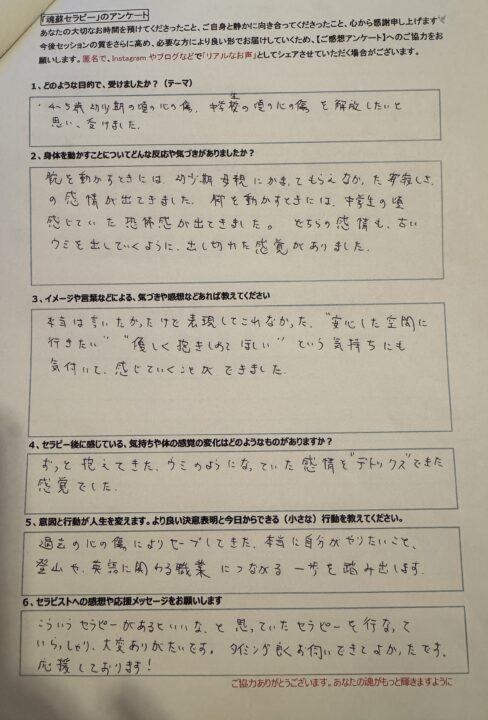 『魂蘇セラピー』のアンケート
あなたの大切なお時間を預けてくださったこと、ご自身と静かに向き合ってくださったこと、心から感謝申し上げます
今後セッションの質をさらに高め、必要な方により良い形でお届けしていくため、【ご感想アンケート】へのご協力をお
願いします。匿名で、Instagram やブログなどで「リアルなお声」としてシェアさせていただく場合がございます。
1、どのような目的で、受けましたか？（テーマ）
・4〜5歳 幼少期の頃の心の傷、中学生の頃の心の傷 を 解放したいと
思い、受けました。
2、身体を動かすことについてどんな反応や気づきがありましたか？
腕を動かすときには、幼少期 母親にかまってもらえなかった 寂しさ
の感情が出てきました。脚を動かすときには、中学生の頃
感じていた 恐怖感が出てきました。 どちらの感情も、古い
ウミを出していくように、出し切れた感覚がありました。
3、イメージや言葉などによる、気づきや感想などあれば教えてください
本当は言いたかったけど 表現してこれなかった、"安心した空間に
行きたい" "優しく抱きしめてほしい" という気持ちにも
気付いて、感じていくことができました。
4、セラピー後に感じている、気持ちや体の感覚の変化はどのようなものがありますか？
ずっと抱えてきた、ウミのようになっていた感情を"デトックス"できた
感覚でした。
5、意図と行動が人生を変えます。より良い決意表明と今日からできる（小さな）行動を教えてください。
過去の心の傷によりセーブしてきた、本当に自分がやりたいこと、
登山や、英語に関わる職業 につながる 一歩を踏み出します。
6、セラピストへの感想や応援メッセージをお願いします
こういうセラピーがあるといいな、と思っていたセラピーを行なって
いらっしゃり、大変ありがたいです。タイミング良くお伺いできてよかったです。
応援しております！
ご協力ありがとうございます。あなたの魂がもっと輝きますように